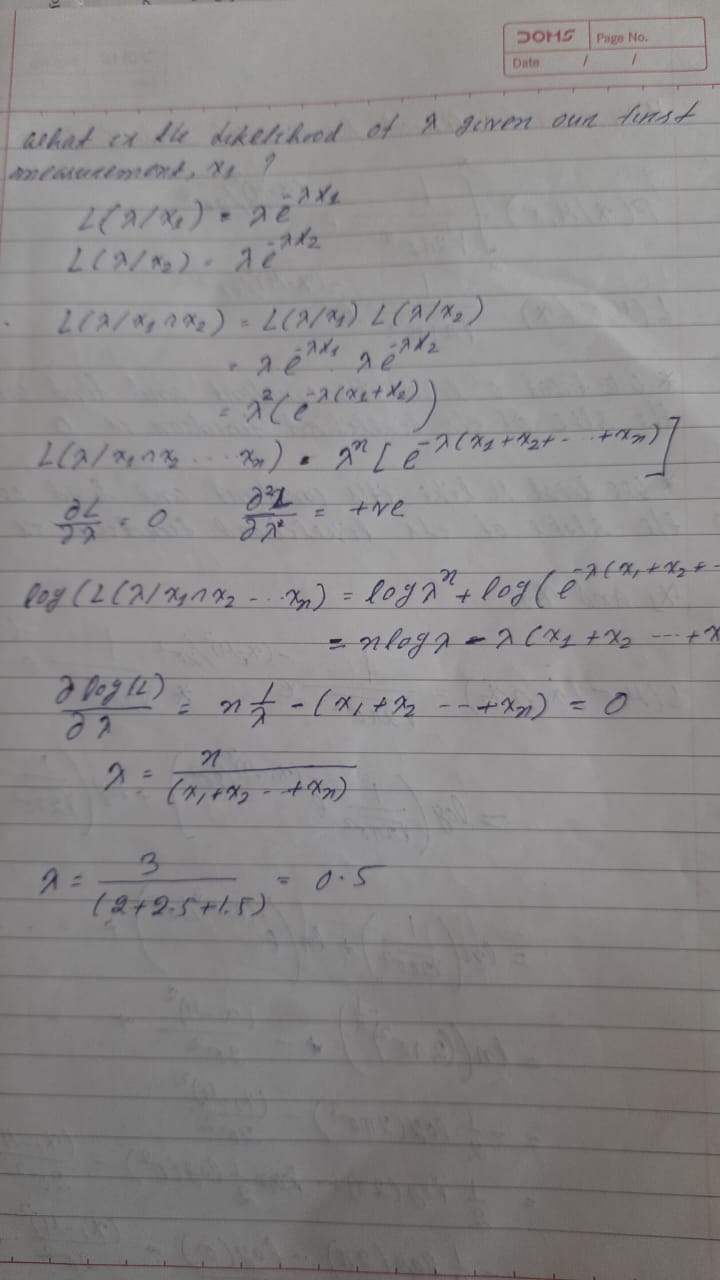 DOMS Page No.
Date / /
What is the likelihood of λ given our first
measurement, x₁ ?
L(λ/x₁) = λe^(-λx₁)
L(λ/x₂) = λe^(-λx₂)
L(λ/x₁∩x₂) = L(λ/x₁) L(λ/x₂)
= λe^(-λx₁) · λe^(-λx₂)
= λ²(e^(-λ(x₁+x₂)))
L(λ/x₁∩x₂ ... xₙ) = λⁿ[e^(-λ(x₁+x₂+...+xₙ))]
∂L/∂λ = 0 ∂²L/∂λ² = +ve
log(L(λ/x₁∩x₂ ... xₙ) = logλⁿ + log(e^(-λ(x₁+x₂+-
= nlogλ - λ(x₁+x₂ ...+x
∂log(L)/∂λ = n 1/λ - (x₁+x₂ --+xₙ) = 0
λ = n/(x₁+x₂ --+xₙ)
λ = 3/(2+2.5+1.5) = 0.5